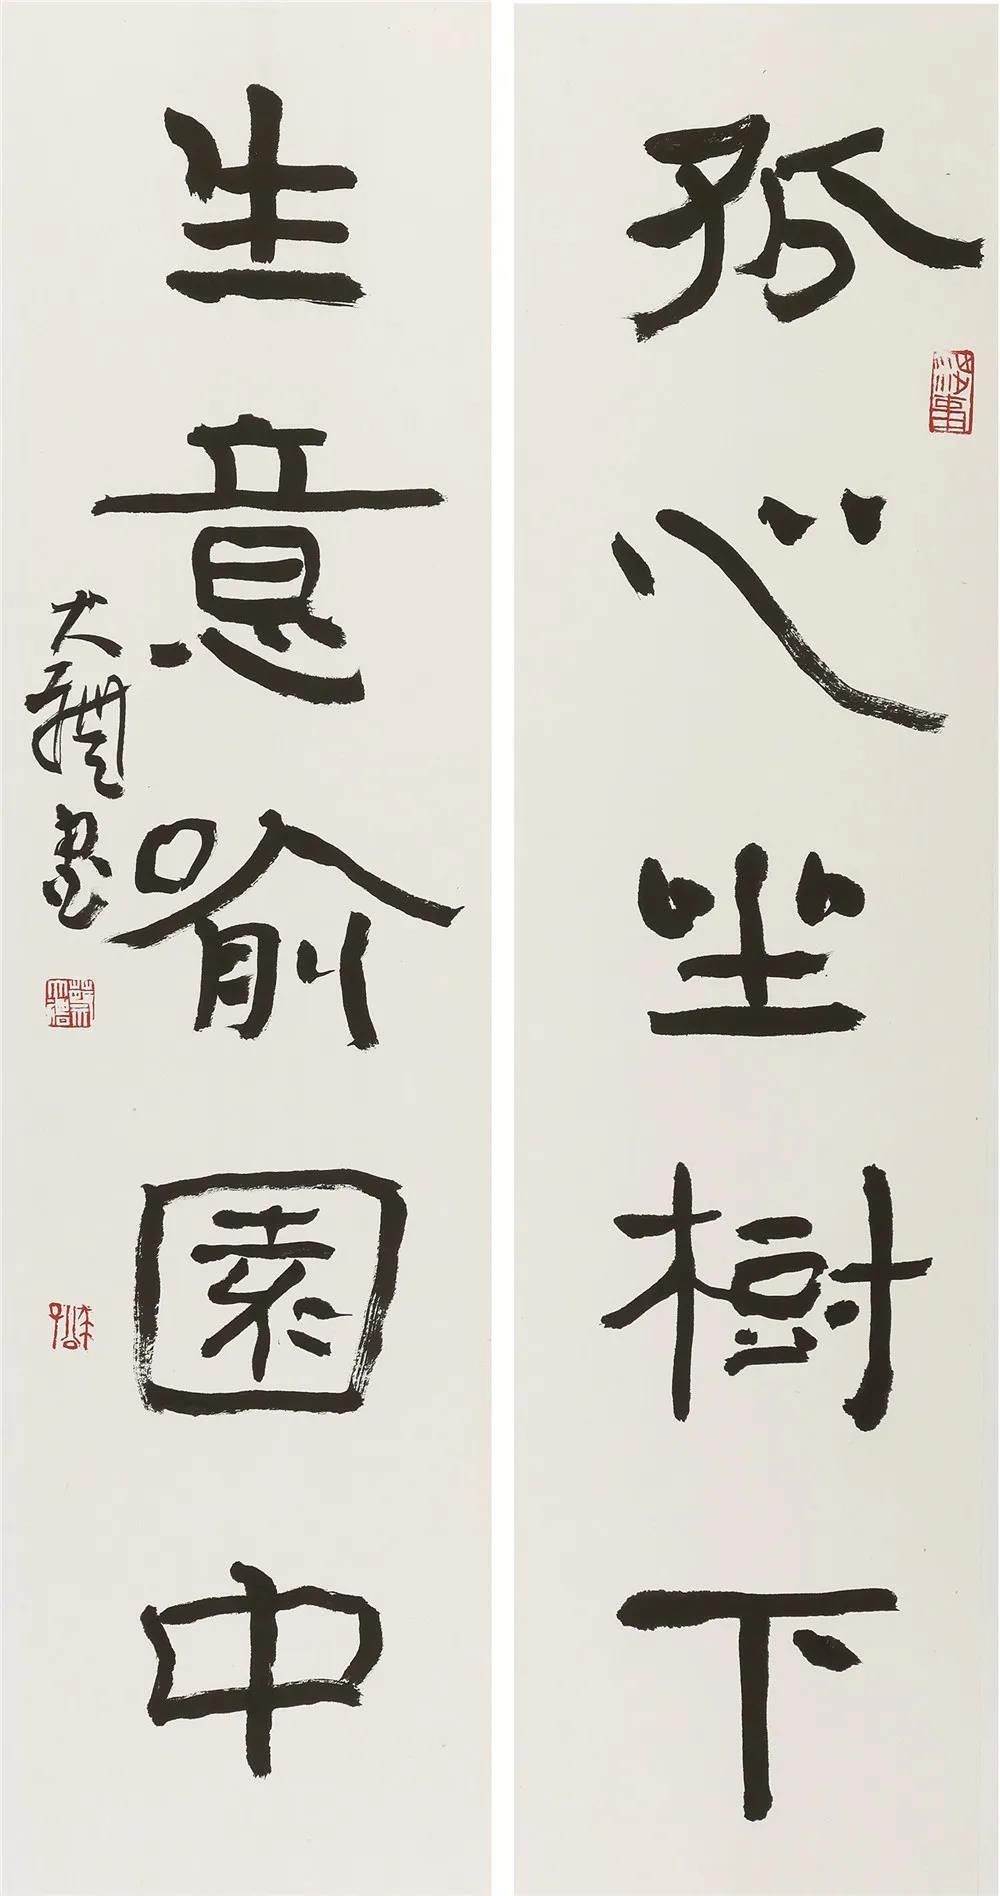 孤心坐樹下
生意喻園中
大 書